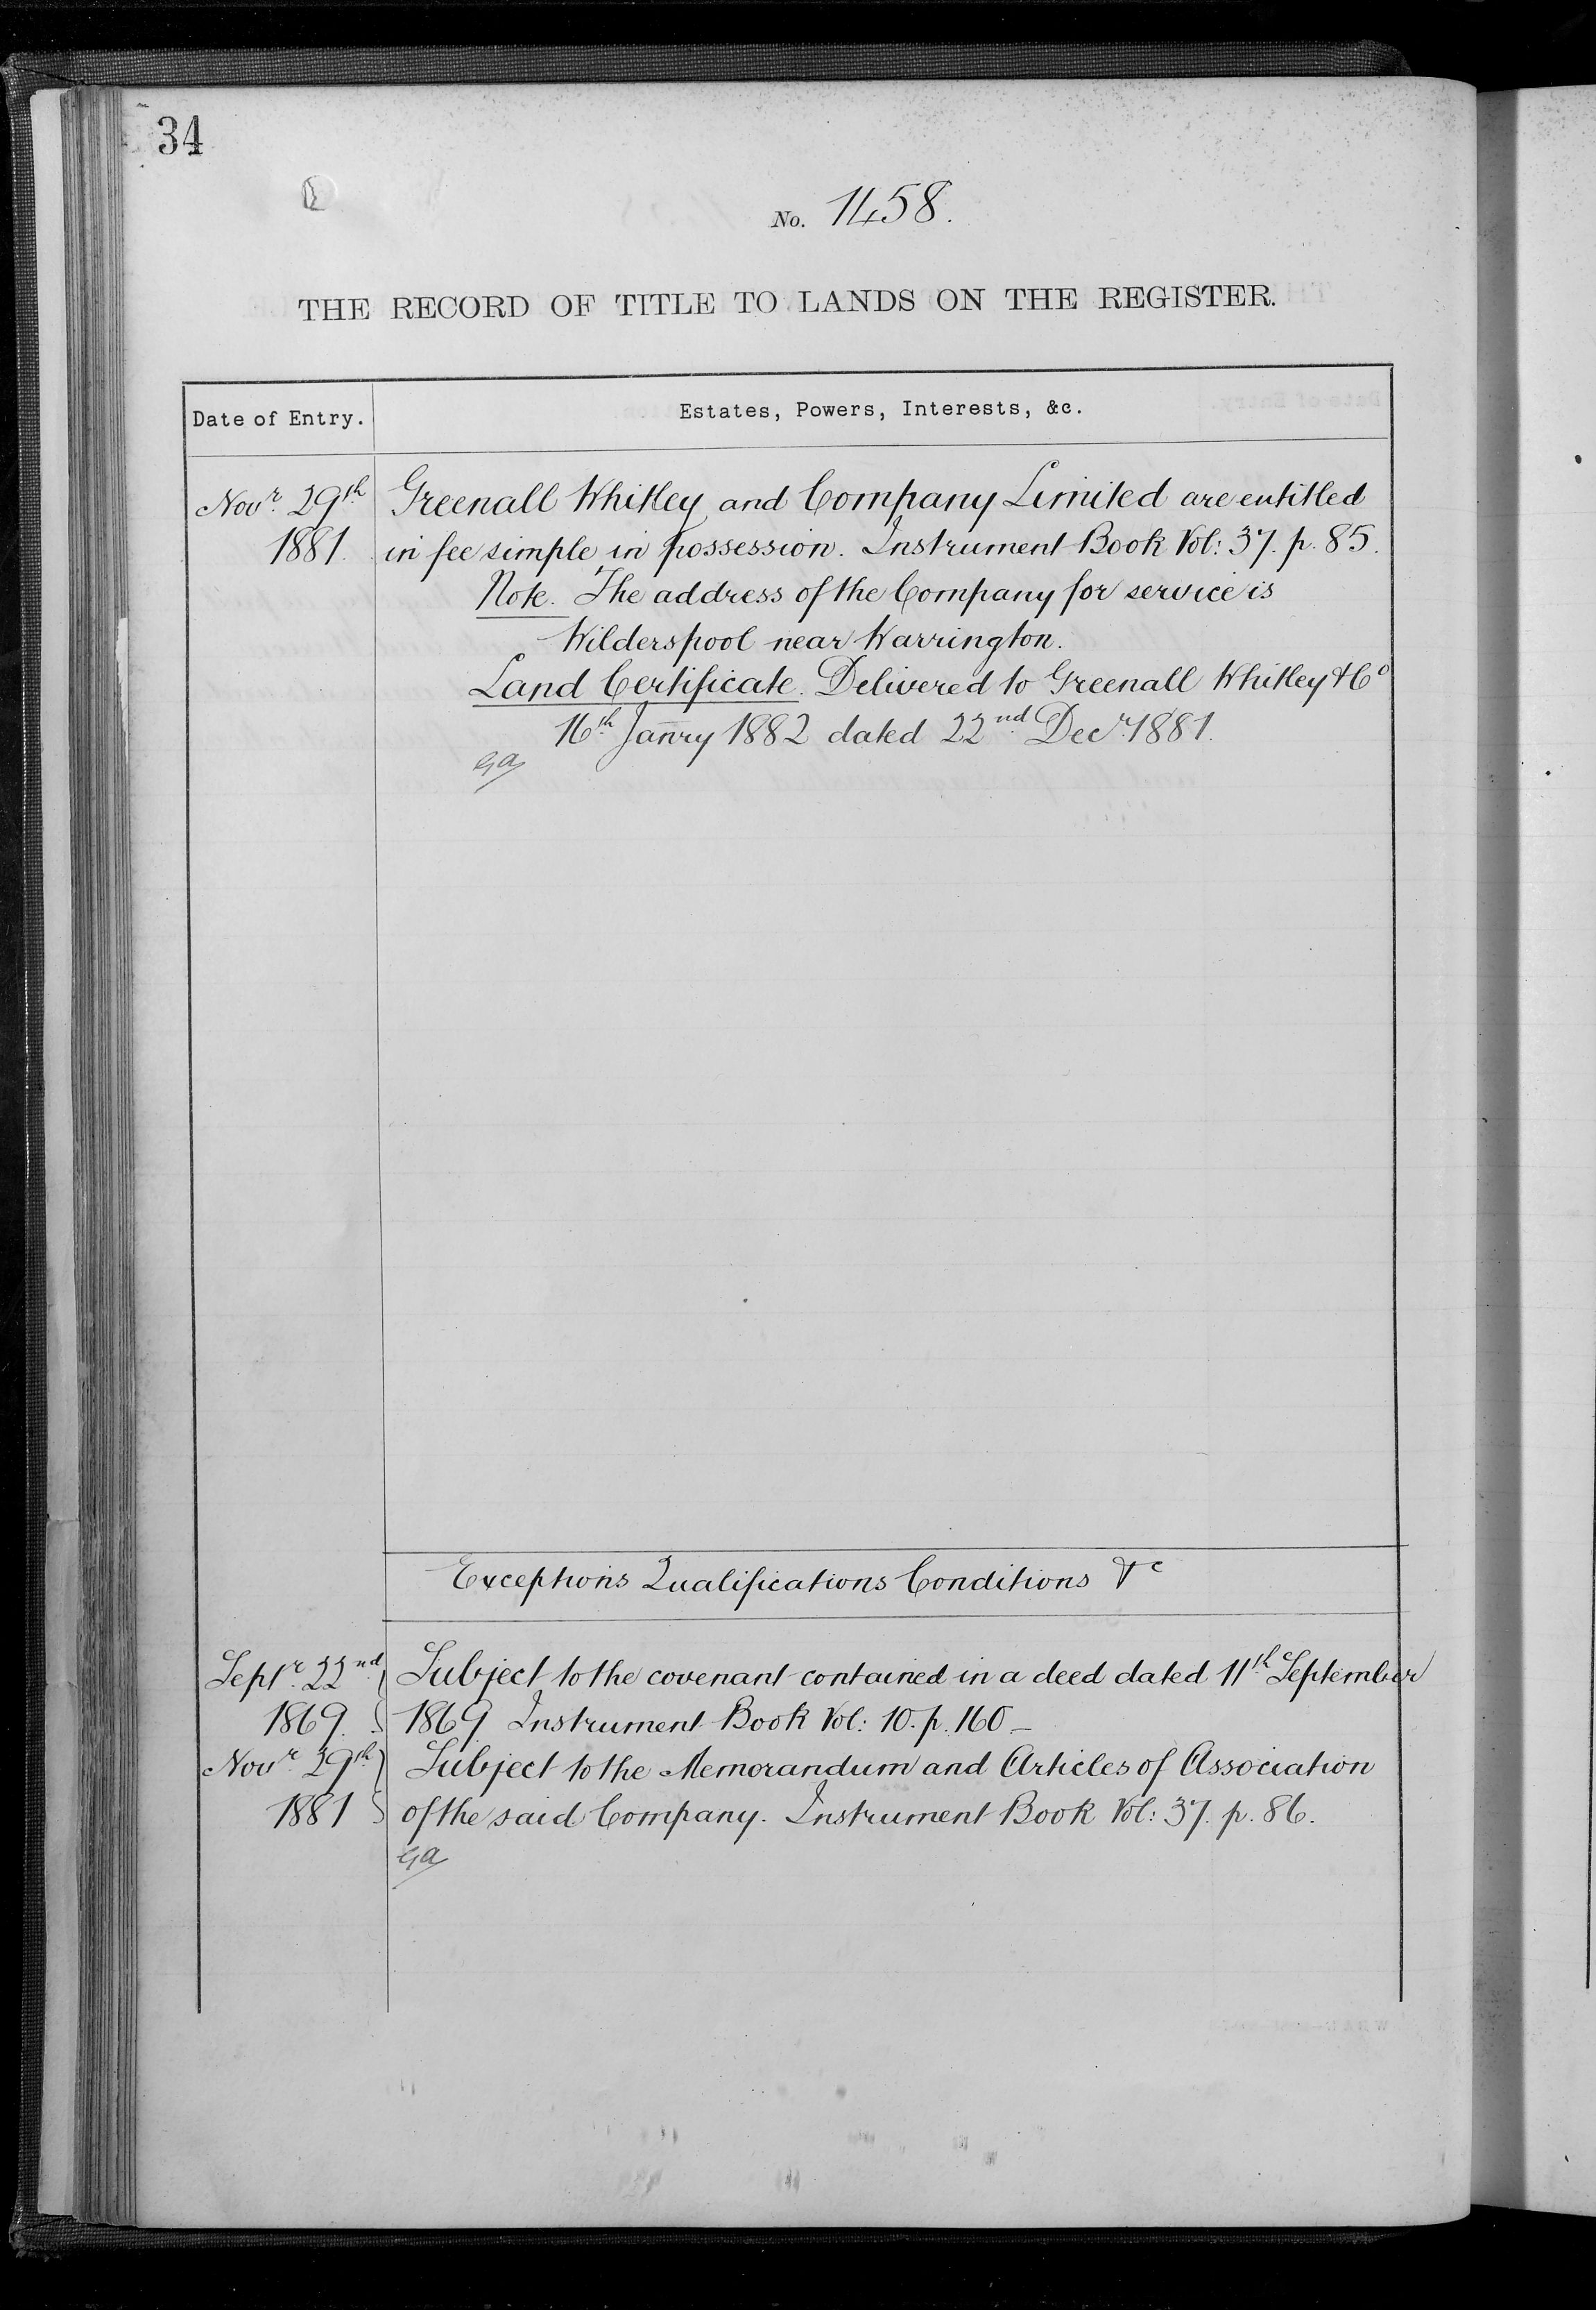 34
No. 1458.
THE RECORD OF TITLE TO LANDS ON THE REGISTER.
Date of Entry.
Estates, Powers, Interests, &c.
Novr. 29th Greenall Whitley and Company Limited are entitled
1881. in fee simple in possession. Instrument Book Vol: 37. p. 85.
Note. The address of the Company for service is
Wilderspool near Warrington.
Land Certificate. Delivered to Greenall Whitley & Co
16th Janry 1882 dated 22nd Decr. 1881.
Exceptions Qualifications Conditions &c
Septr. 22nd Subject to the covenant contained in a deed dated 11th September
1869. 1869 Instrument Book Vol: 10. p. 160 –
Novr. 29th Subject to the Memorandum and Articles of Association
1881 of the said Company. Instrument Book Vol: 37. p. 86.